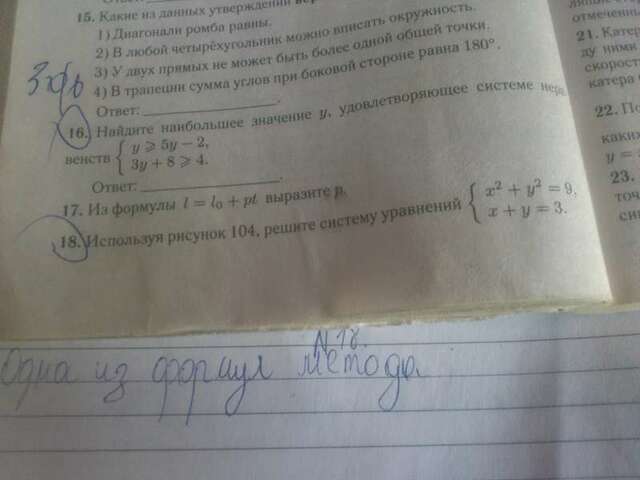 Ответ:
15. Какие из данных утверждений
1) Диагонали ромба равны.
2) В любой четырёхугольник можно вписать окружность.
3) У двух прямых не может быть более одной общей точки.
4) В трапеции сумма углов при боковой стороне равна 180°.
Ответ:
16. Найдите наибольшее значение y, удовлетворяющее системе нера-
венств { y ⩾ 5y − 2,
3y + 8 ⩾ 4.
Ответ:
17. Из формулы l = l₀ + pt выразите p.
18. Используя рисунок 104, решите систему уравнений { x² + y² = 9,
x + y = 3.
отмеченны
21. Катер
ду ними
скорость
катера
22. По
каких
y =
23.
точ
си
N 18.
Одна из формул метода